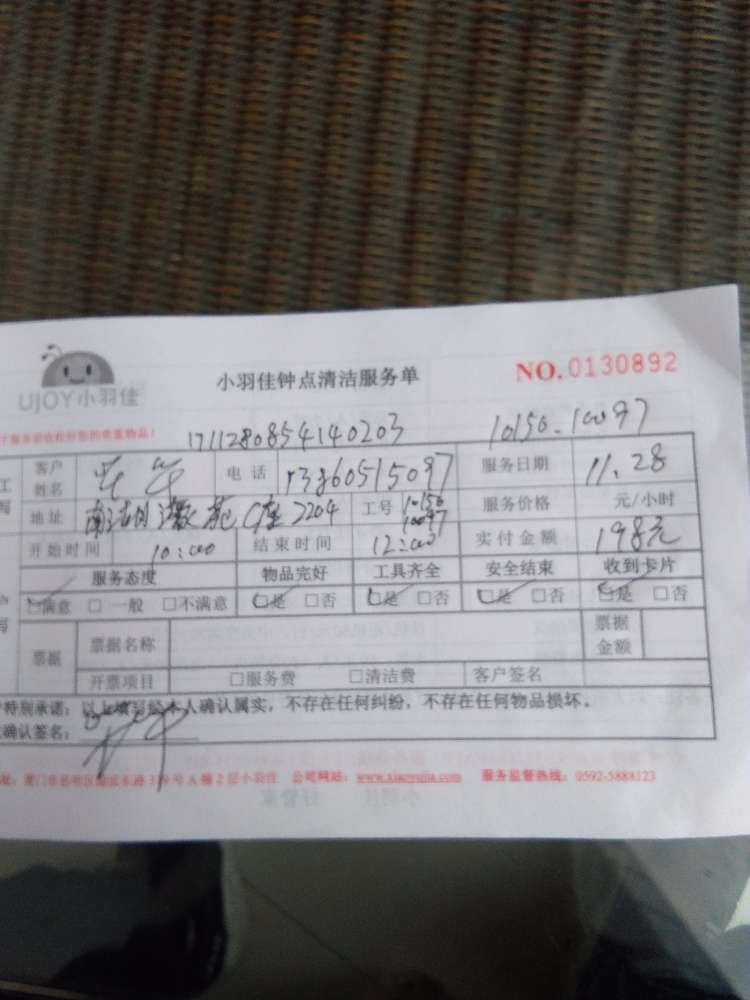 UJOY小羽佳
小羽佳钟点清洁服务单
NO.0130892
171128085414 0203 10156.10097
客户姓名 电话 13860515097 服务日期 11.28
地址 C座2204 工号 10156 10097 服务价格 元/小时
开始时间 10:00 结束时间 12:00 实付金额 198元
服务态度 物品完好 工具齐全 安全结束 收到卡片
☑满意 □一般 □不满意 ☑是 □否 ☑是 □否 ☑是 □否 ☑是 □否
票据 票据名称 票据金额
开票项目 □服务费 □清洁费 客户签名
特别承诺：以上填写经本人确认属实，不存在任何纠纷，不存在任何物品损坏。
确认签名：
号A幢2层小羽佳 公司网站： 服务监督热线：0592-5888123